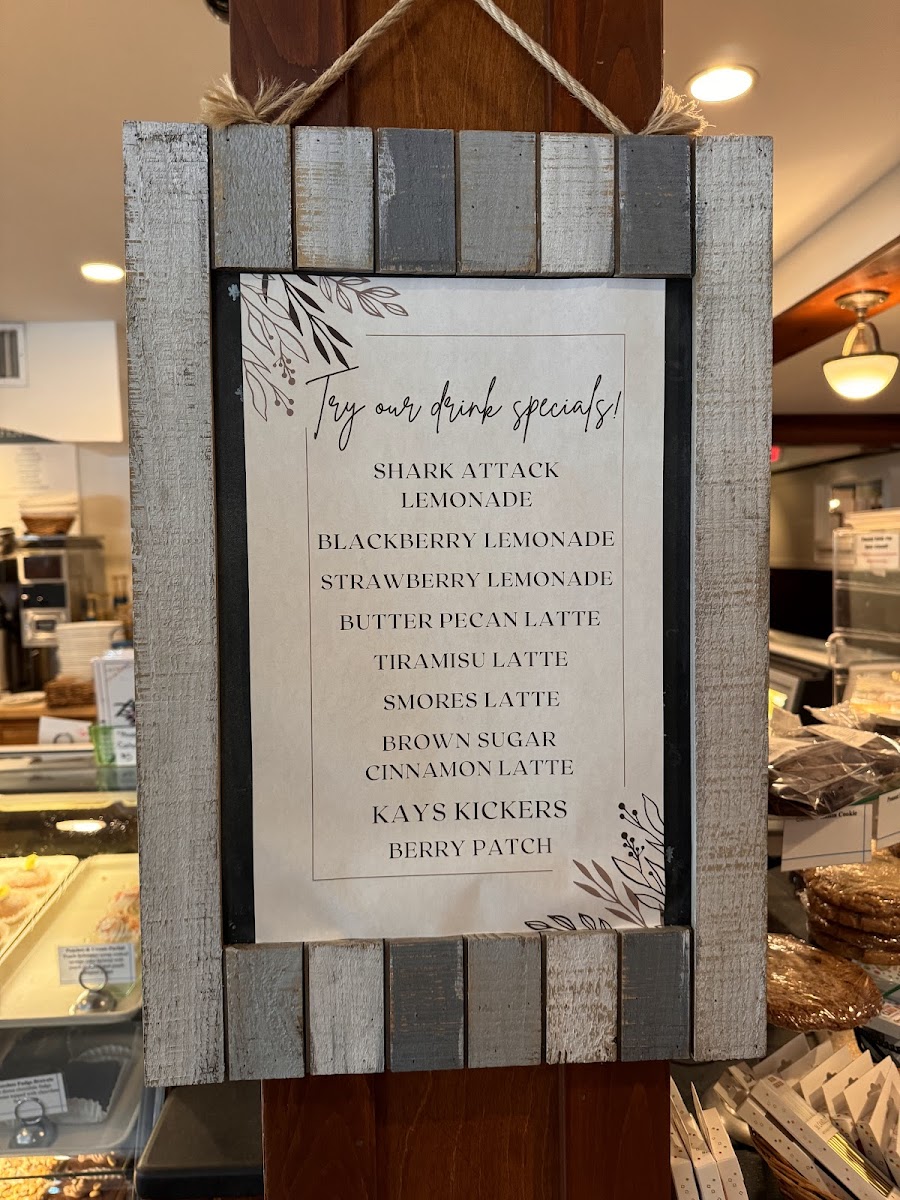 Try our drink specials!
SHARK ATTACK
LEMONADE
BLACKBERRY LEMONADE
STRAWBERRY LEMONADE
BUTTER PECAN LATTE
TIRAMISU LATTE
SMORES LATTE
BROWN SUGAR
CINNAMON LATTE
KAYS KICKERS
BERRY PATCH
Cookie